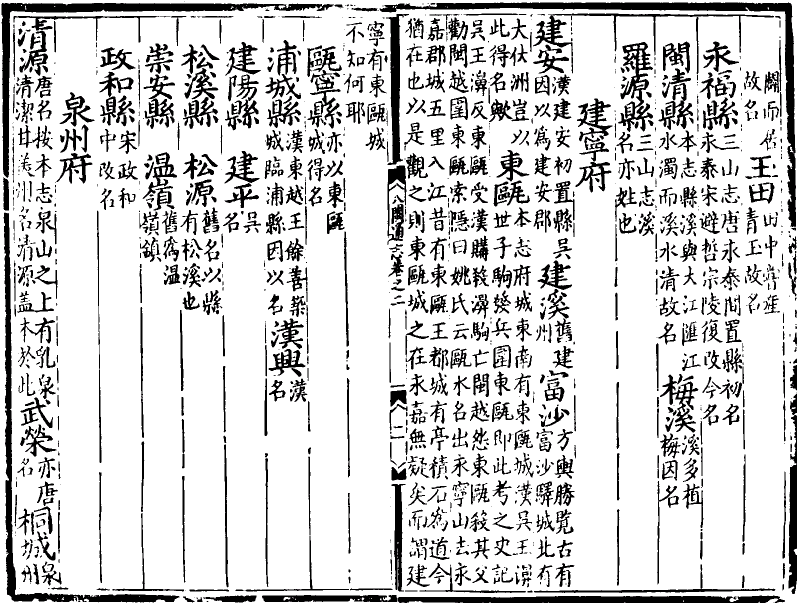 故名 玉田 田中嘗產青玉故名
永福縣 三山志唐永泰間置縣初名永泰宋避哲宗陵復改今名
閩清縣 本志縣溪與大江匯江水濁而溪水清故名 梅溪 溪多植梅因名
羅源縣 三山志溪名亦如也
建寧府
建安 漢建安初置縣吳因以為建安郡 建溪 舊建州 富沙 方輿勝覽古有富沙驛城北有
大伏洲豈以此得名歟 東甌 本志府城東南有東甌城漢吳王濞世子駒發兵圍東甌即此考之史記
吳王濞反東甌受漢購殺濞駒亡閩越怨東甌殺其父勸閩越圍東甌索隱曰姚氏云甌水名出永寧山去永
嘉郡城五里入江昔有東甌王都城有亭積石為道今猶在也以是觀之則東甌城之在永嘉無疑矣而謂建
八閩通志卷之二
二
寧有東甌城不知何耶
甌寧縣 亦以東甌城得名
浦城縣 漢東越王餘善築城臨浦縣因以名 漢興 漢名
建陽縣 建平 吳名
松溪縣 松源 舊名以縣有松溪也
崇安縣 温嶺 舊為温嶺鎮
政和縣 宋政和中改名
泉州府
清源 唐名按本志泉山之上有乳泉清潔甘美州名清源蓋本於此 武榮 亦唐名 桐城 泉州